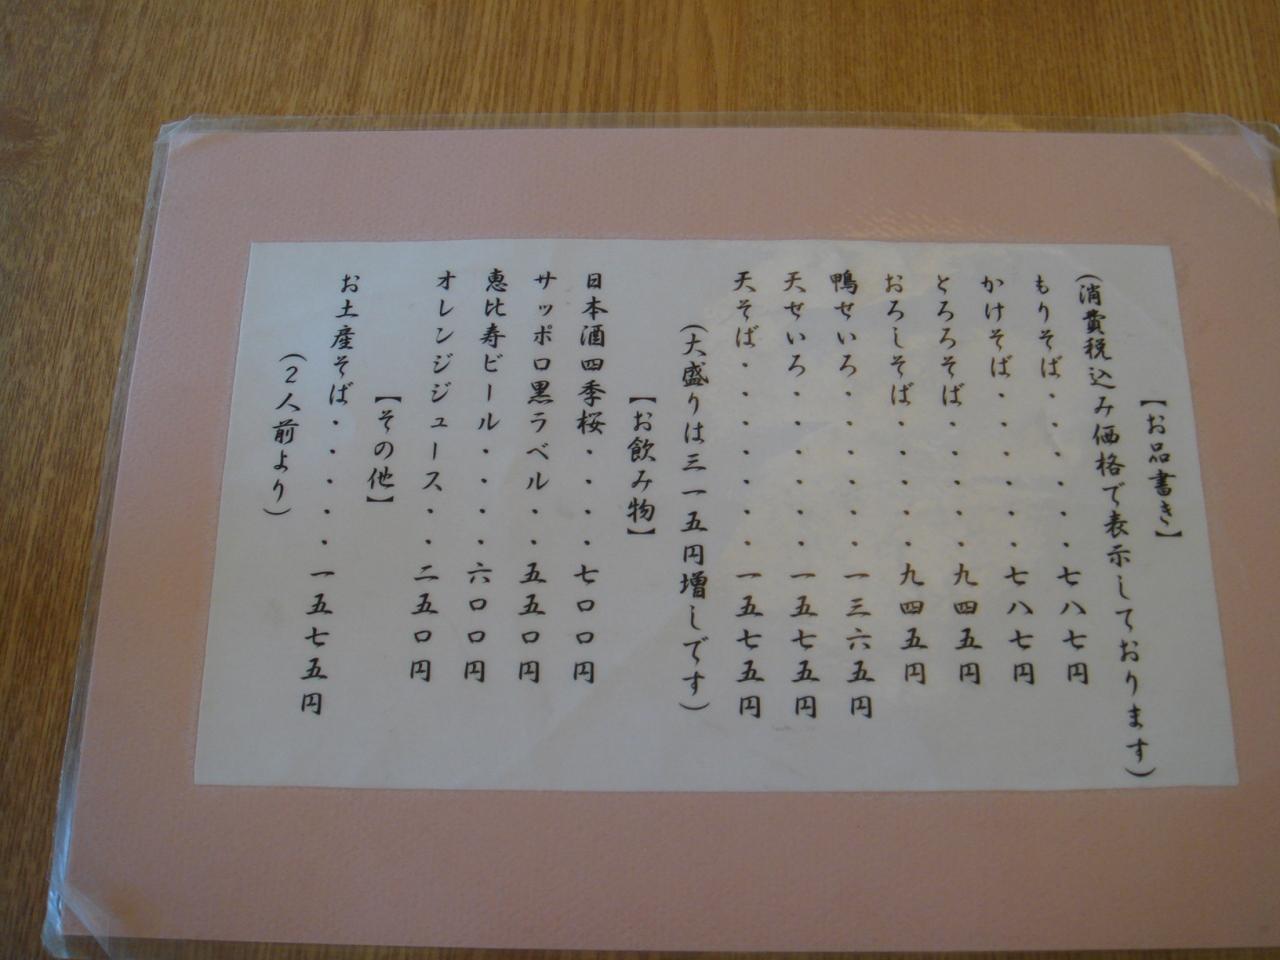 【お品書き】
(消費税込み価格で表示しております)
もりそば・・・・・・七八七円
かけそば・・・・・・七八七円
とろろそば・・・・・九四五円
おろしそば・・・・・九四五円
鴨せいろ・・・・・・一三六五円
天せいろ・・・・・・一五七五円
天そば・・・・・・・一五七五円
(大盛りは三一五円増しです)
【お飲み物】
日本酒四季桜・・・・七〇〇円
サッポロ黒ラベル・・五五〇円
恵比寿ビール・・・・六〇〇円
オレンジジュース・・二五〇円
【その他】
お土産そば・・・・・一五七五円
(2人前より)